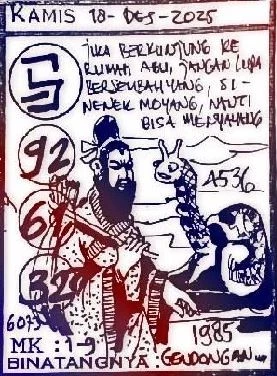 KAMIS 18-DES-2025
JIKA BERKUNJUNG KE
RUMAH ABU, JANGAN LUPA
BERSEMBAHYANG, SI-
NENEK MOYANG, NANTI
BISA
92
A536
32
1985
MK : 1-9
BINATANGNYA : GENDONGAN